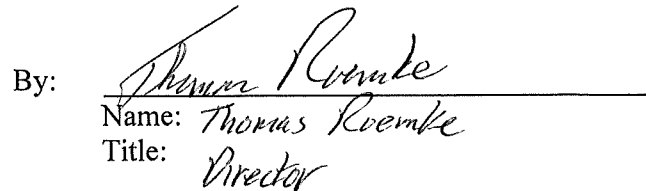 By: Thomas Roemke
Name: Thomas Roemke
Title:
Director